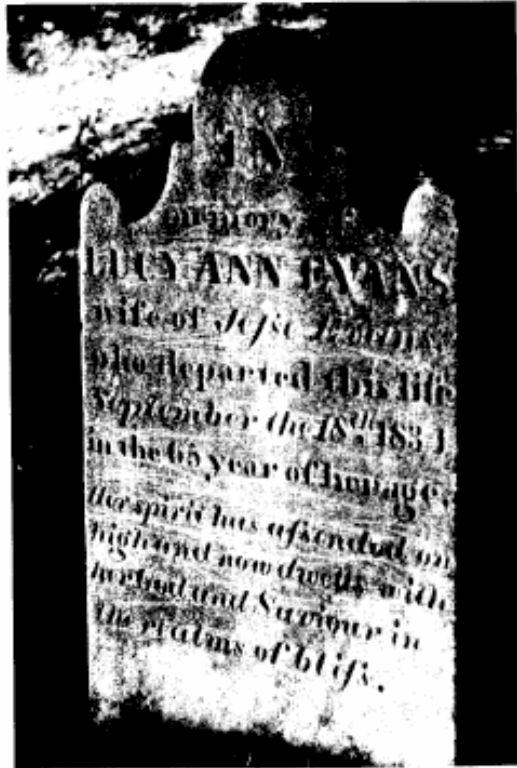 IN
memory of
LUCY ANN EVANS
wife of Jesse Evans
who departed this life
September the 18th. 1834
in the 65 year of her age.
Her spirit has assended on
high and now dwells with
her God and Saviour in
the realms of bliss.